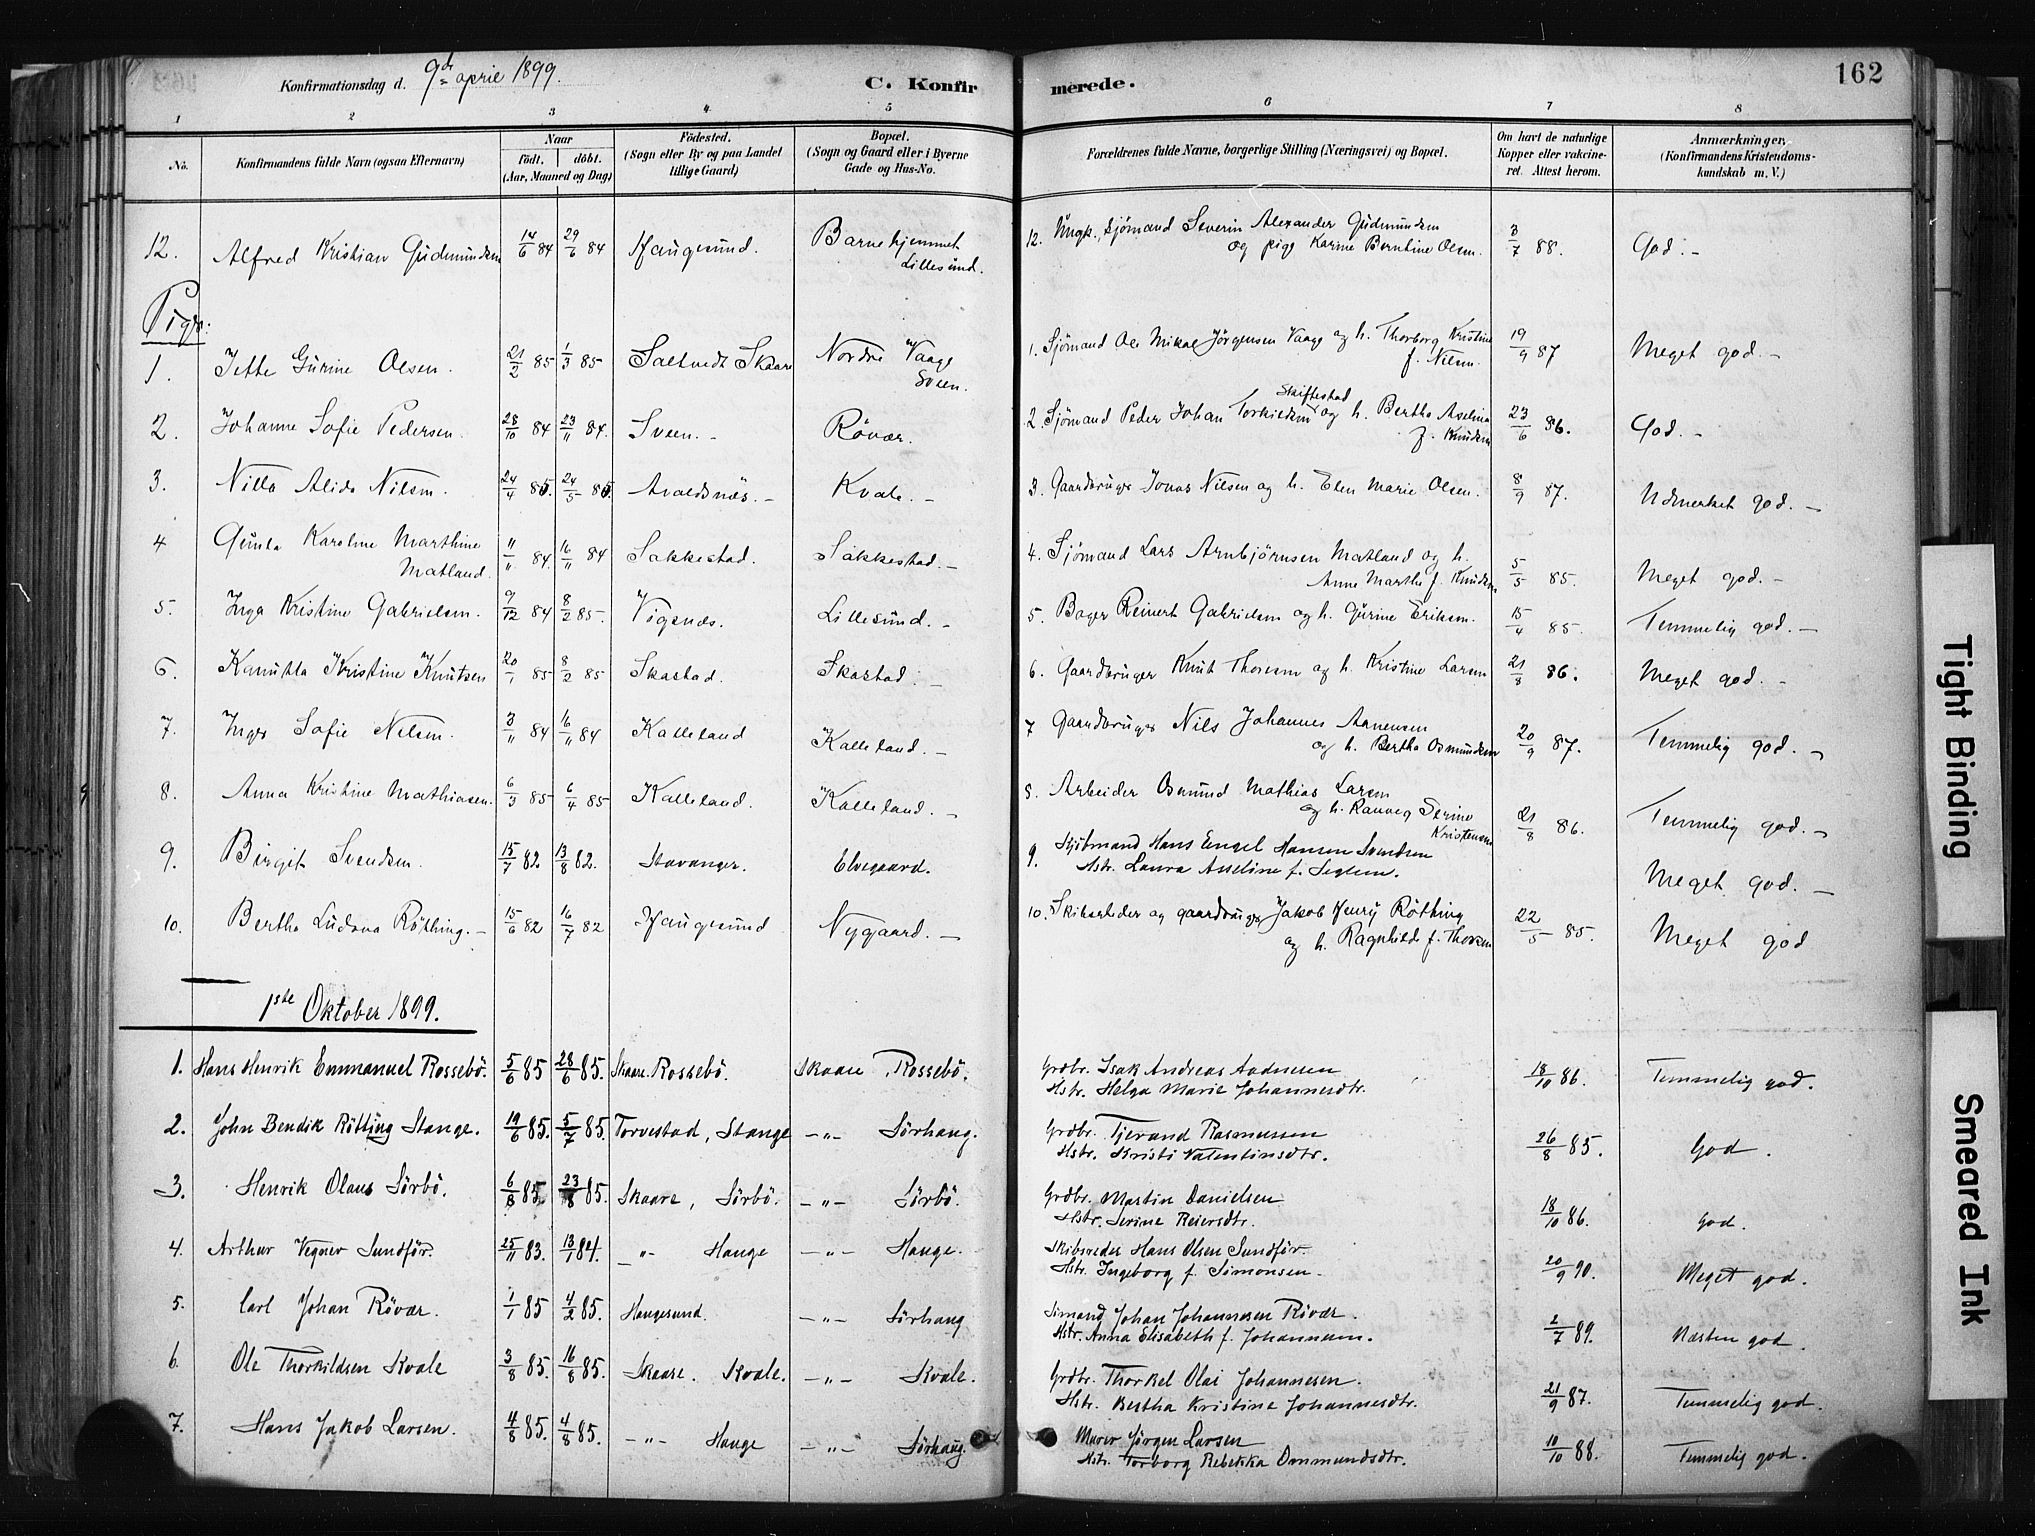 Konfirmationsdag d. 9de april 1899. C. Konfirmerede. 162
1 2 3 4 5 6 7 8
No. Konfirmandens fulde Navn (ogsaa Efternavn) Naar födt. döbt. (Aar, Maaned og Dag) Födested. (Sogn eller By og paa Landet tillige Gaard) Bopæl. (Sogn og Gaard eller i Byerne Gade og Hus-No. Forældrenes fulde Navne, borgerlige Stilling (Næringsvei) og Bopæl. Om havt de naturlige Kopper eller vakcineret. Attest herom. Anmærkninger. (Konfirmandens Kristendomskundskab m. V.)
12. Alfred Kristian Gudmundsen 14/6 84 29/6 84 Haugesund. Barnehjemmet Lillesund. 12. Ungk., Sjömand Severin Alexander Gudmundsen og pige Karine Berntine Olsen. 3/7 88. God. -
Piger:
1. Jette Gurine Olsen. 21/2 85 1/3 85 Saltvedt Skaare Nordre Vaage Sveen. 1. Sjömand Ole Mikal Jörgensen Vaage og h. Thorborg Kristine f. Nilsen. 19/9 87 Meget god. -
2. Johanne Sofie Pedersen. 28/10 84 23/11 84. Sveen. - Rövær. 2. Sjömand Peder Johan Torkildsen Skiftestad og h. Bertha Aselina f. Knudsen 23/6 86. God. -
3. Nilla Alida Nilsen. 24/4 85. 24/5 85. Avaldsnes. - Kvale. - 3. Gaardbruger Jonas Nilsen og h. Elen Marie Olsen. 8/9 87. Udmerket god. -
4 Gunla Karoline Marthine Matland. 11/11 84. 16/11 84 Sakkestad. Sakkestad. - 4. Sjömand Lars Arnbjörnsen Matland og h. Anne Marthe f. Knudsen 5/5 85. Meget god. -
5. Inga Kristine Gabrielsen. 9/12 84 8/2 85. Vigsnes. Lillesund. - 5. Bager Reinert Gabrielsen og h. Gurine Eriksen. 15/4 85. Temmelig god. -
6. Kanutta Kristine Knutsen 20/1 85 8/2 85 Skastad. Skastad. - 6. Gaardbruger Knut Thoresen og h. Kristine Larsen 21/8 86. Meget god. -
7. Inger Sofie Nilsen. 3/11 84 16/11 84 Kalleland Kalleland. - 7 Gaardbruger Nils Johannes Aanensen og h. Bertha Osmundsen 20/9 87. Temmelig god. -
8. Anna Kristine Mathiasen. 6/3 85 6/4 85 Kalleland. Kalleland. - 8. Arbeider Osmund Mathias Larsen og h. Ranveg Serine Kristensen 21/8 86. Temmelig god. -
9. Birgit Svendsen. 15/7 82 13/8 82. Stavanger. Elvegaard. 9. Kjöbmand Hans Engel Hansen Svendsen Hstr. Laura Asseline f. Seglem. Meget god. -
10. Bertha Ludova Röthing. - 15/6 82 16/7 82 Haugesund Nygaard. - 10. Skibsreder og gaardbruger Jakob Henry Röthing og h. Ragnhilde f. Thorsen 22/5 85. Meget god
1ste Oktober 1899.
1. Hans Henrik Emmanuel Rossebö. 5/6 85 28/6 85. Skaare. Rossebö. Skaare, Rossebö. Grdbr. Isak Andreas Aadnesen Hstr. Helga Marie Johannesdtr. 18/10 86. Temmelig god.
2. John Bendik Rötting Stange. 19/6 85. 5/7 85. Torvestad, Stange -"- Sörhaug. Grdbr. Tjerand Rasmussen Hstr. Kristi Valentinsdtr. 26/8 85. God.
3. Henrik Olaus Sörbö. 6/8 85. 23/8 85. Skaare, Sörbö. -"- Sörbö. Grdbr. Martin Danielsen Hstr. Serine Reiersdtr. 18/10 86. God.
4. Arthur Vegner Sundför. 25/11 83. 13/1 84. -"- Hauge -"- Hauge. Skibsreder Hans Olsen Sundför. Hstr. Ingeborg f. Simonsen. 20/9 90. Meget god.
5. Carl Johan Rövær. 1/1 85 4/2 85. Haugesund. -"- Sörhaug Sömand Johan Johannesen Rövær. Hstr. Anna Elisabeth f. Johannesen. 2/7 89. Næsten god.
6. Ole Thorkildsen Kvale 3/8 85. 16/8 85. Skaare. Kvale. -"- Kvale. Grdbr. Thorkel Olai Johannesen. Hstr. Bertha Kristine Johannesdtr. 21/9 87. Temmelig god.
7. Hans Jakob Larsen. 4/8 85. 4/8 85. -"- Hauge -"- Sörhaug. Murer Jörgen Larsen Hstr. Torborg Rebekka Ommundsdtr. 10/10 88. Temmelig god.
Tight Binding
Smeared Ink